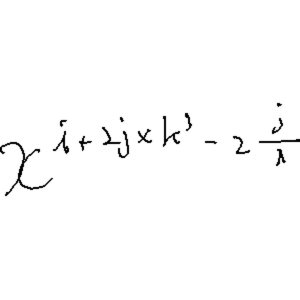 x^{i+2j×k^3} - 2 \frac{j}{}